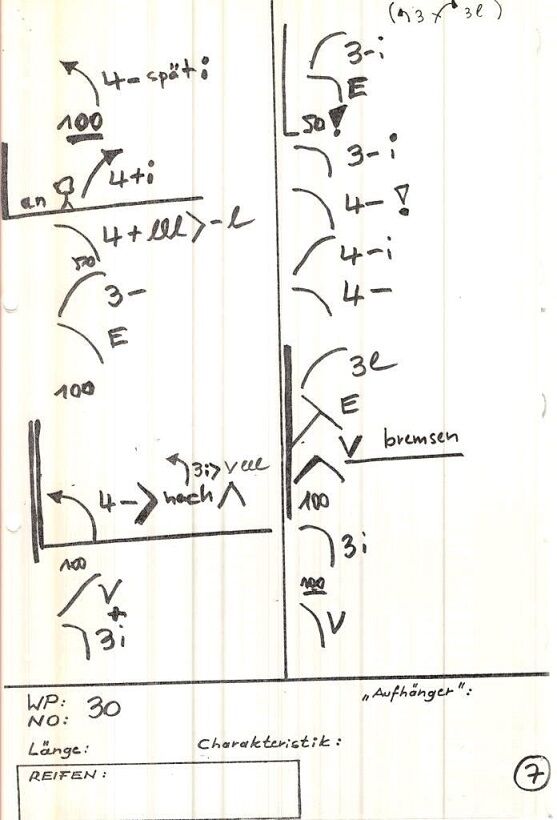 4- spät i
100
an 4+i
4+ lll > -l
50
3-
E
100
3i > vlll
4- > nach Λ
100
V
+
3i
3-i
E
50 !
3-i
4- !
4-i
4-
3l
E
V bremsen
Λ
100
3i
100
V
WP: 30
NO:
Länge:
REIFEN:
„Aufhänger":
Charakteristik:
7